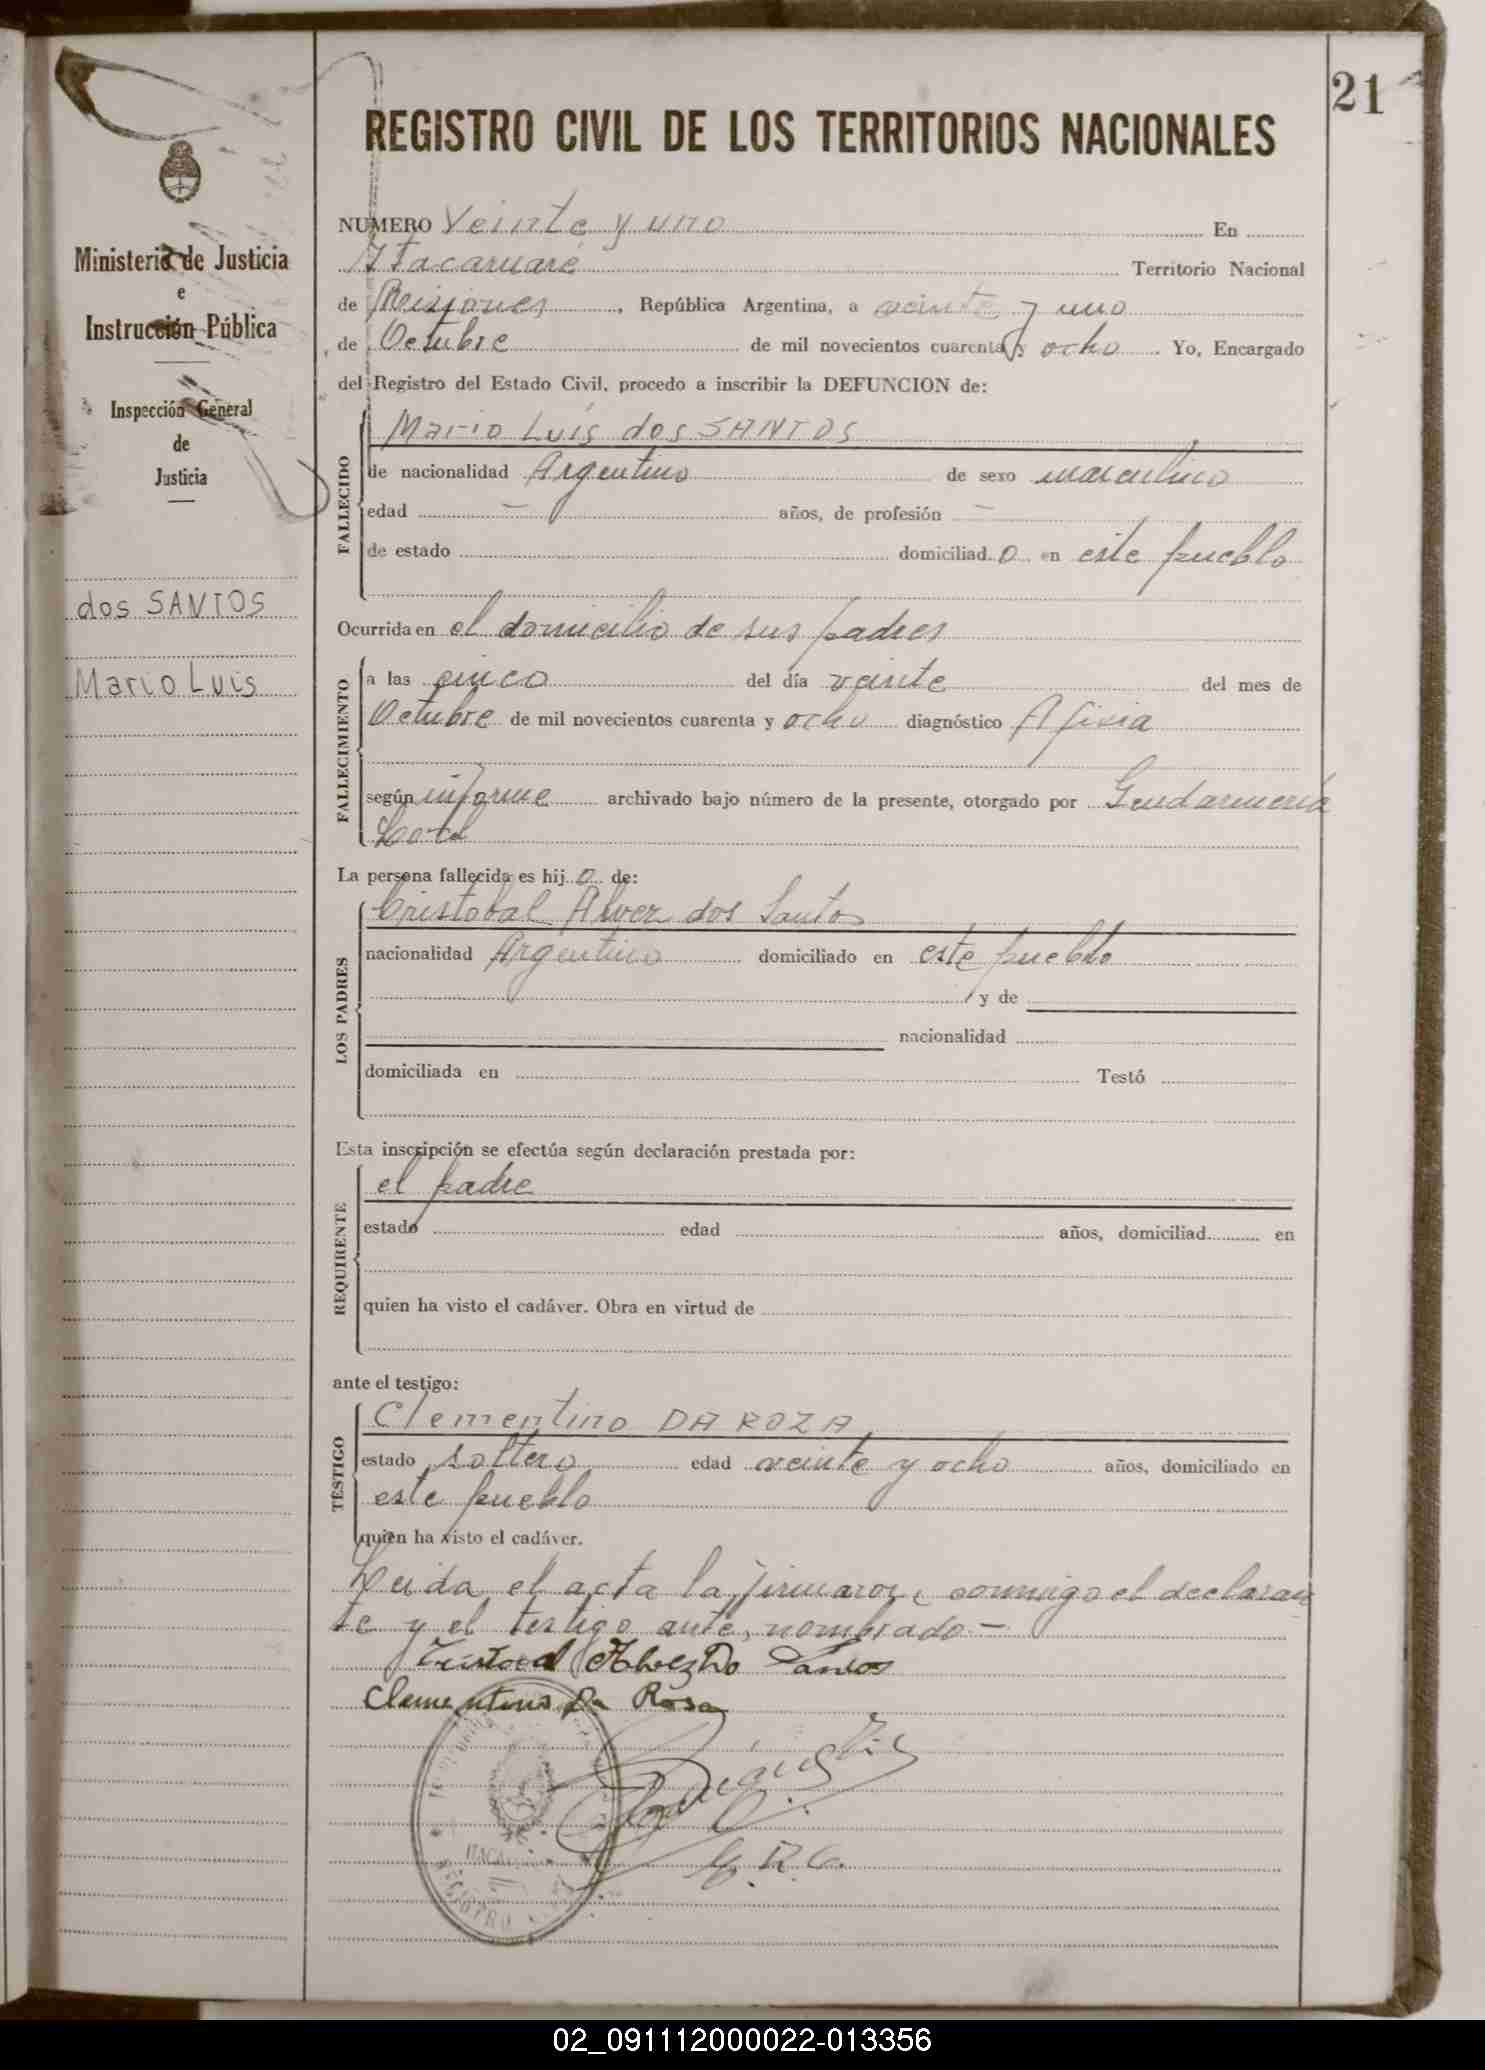 21
REGISTRO CIVIL DE LOS TERRITORIOS NACIONALES
Ministerio de Justicia
e
Instrucción Pública
Inspección General
de
Justicia
dos SANTOS
Mario Luis
NUMERO Veinte y uno En
Itacaruaré Territorio Nacional
de Misiones, República Argentina, a veinte y uno
de Octubre de mil novecientos cuarenta y ocho. Yo, Encargado
del Registro del Estado Civil, procedo a inscribir la DEFUNCION de:
FALLECIDO
Mario Luis dos SANTOS
de nacionalidad Argentino de sexo masculino
edad — años, de profesión —
de estado domiciliad o en este pueblo
Ocurrida en el domicilio de sus padres
FALLECIMIENTO
a las cinco del día veinte del mes de
Octubre de mil novecientos cuarenta y ocho diagnóstico Afixia
según informe archivado bajo número de la presente, otorgado por Gendarmeria
Local
La persona fallecida es hij o de:
LOS PADRES
Cristobal Alvez dos Santos
nacionalidad Argentino domiciliado en este pueblo
y de
nacionalidad
domiciliada en Testó
Esta inscripción se efectúa según declaración prestada por:
REQUIRENTE
el padre
estado edad años, domiciliad en
quien ha visto el cadáver. Obra en virtud de
ante el testigo:
TESTIGO
Clementino DA ROZA
estado soltero edad veinte y ocho años, domiciliado en
este pueblo
quien ha visto el cadáver.
Leida el acta la firmaron conmigo el declaran
te y el testigo ante nombrado —
Cristobal Alvez Do Santos
Clementino Da Rosa
E. R. C.
REGISTRO
02_091112000022-013356